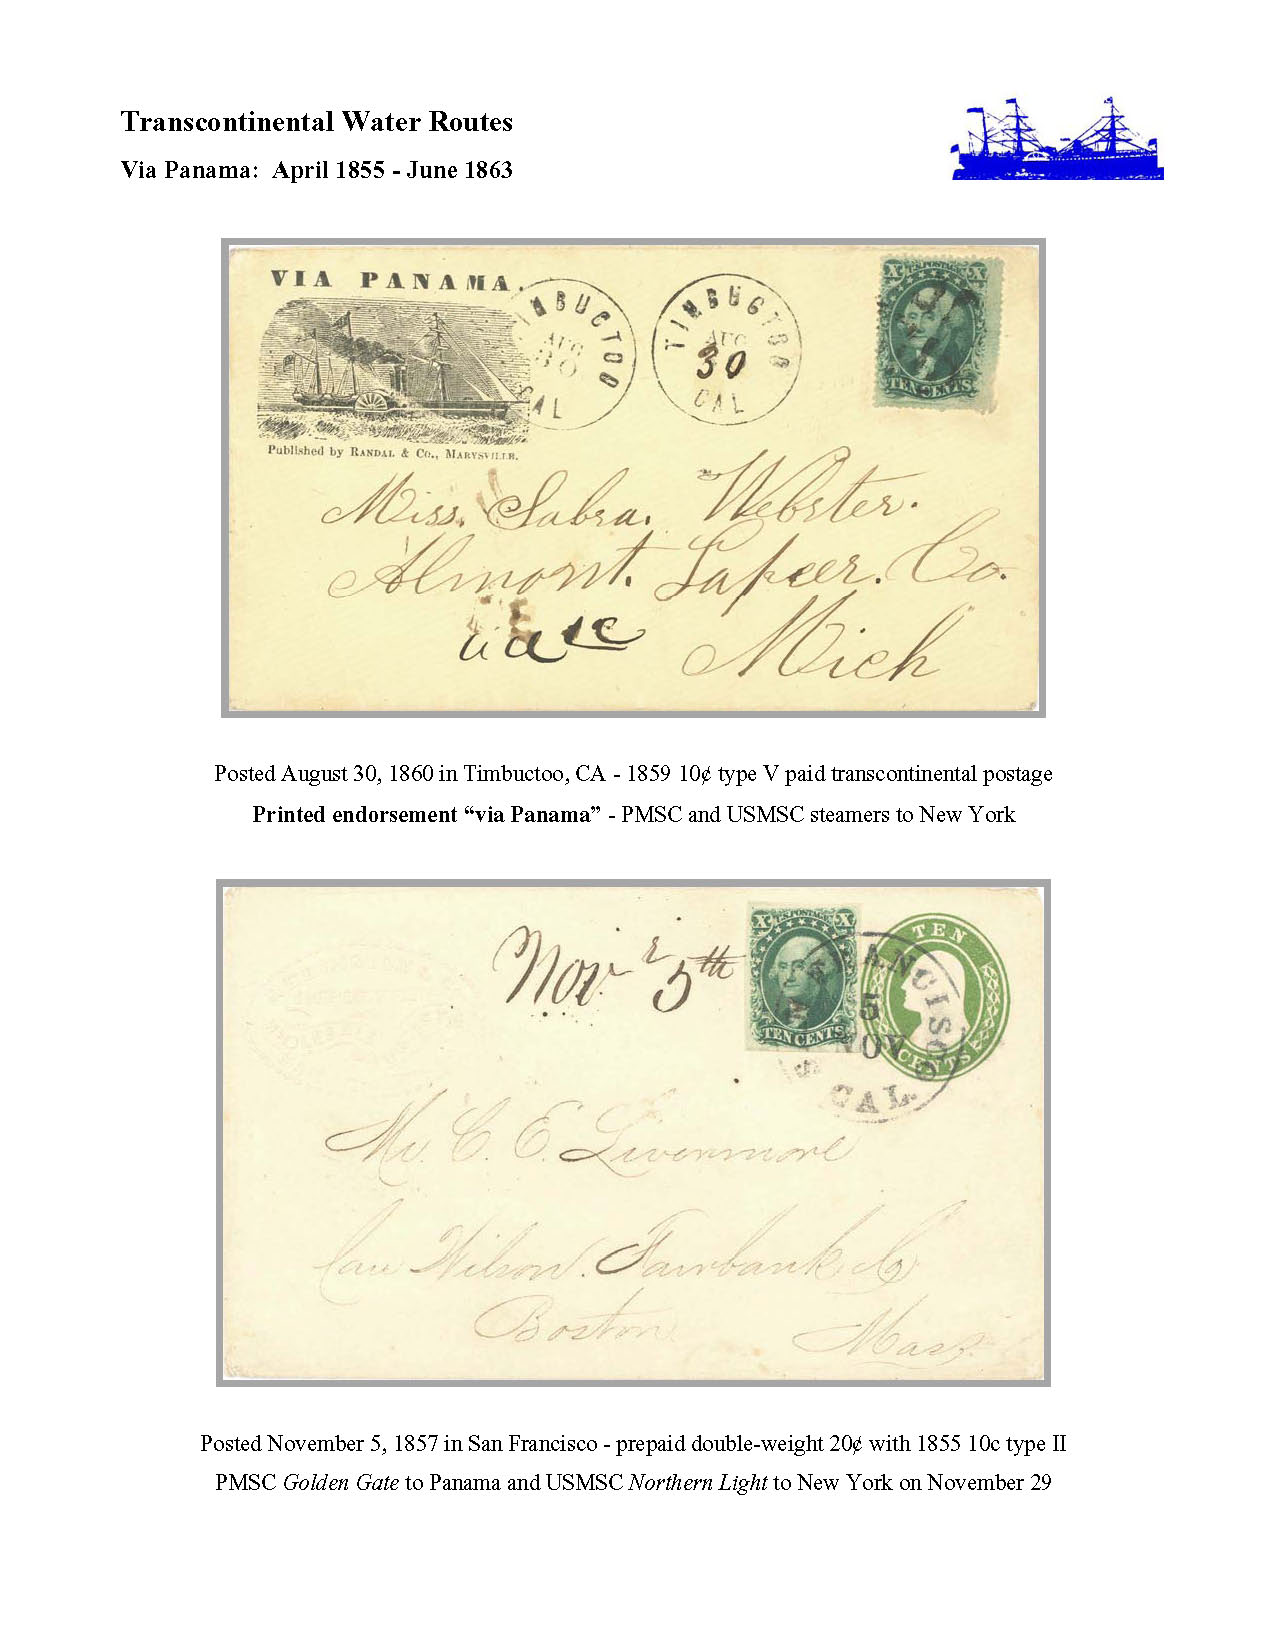 Transcontinental Water Routes
Via Panama: April 1855 - June 1863
VIA PANAMA.
TIMBUCTOO
AUG
30
CAL
TIMBUCTOO
AUG
30
CAL
X U.S. POSTAGE X
TEN CENTS
Published by RANDAL & Co., MARYSVILLE.
Miss. Sabra. Webster.
Almont. Lapeer. Co.
Mich
Posted August 30, 1860 in Timbuctoo, CA - 1859 10¢ type V paid transcontinental postage
Printed endorsement “via Panama” - PMSC and USMSC steamers to New York
Novr 5th
X U.S. POSTAGE X
TEN CENTS
TEN
CENTS
SAN FRANCISCO
5
NOV
CAL.
Mr. C. E. Livermore
Care Wilson. Fairbank & Co
Boston
Mass.
Posted November 5, 1857 in San Francisco - prepaid double-weight 20¢ with 1855 10c type II
PMSC Golden Gate to Panama and USMSC Northern Light to New York on November 29